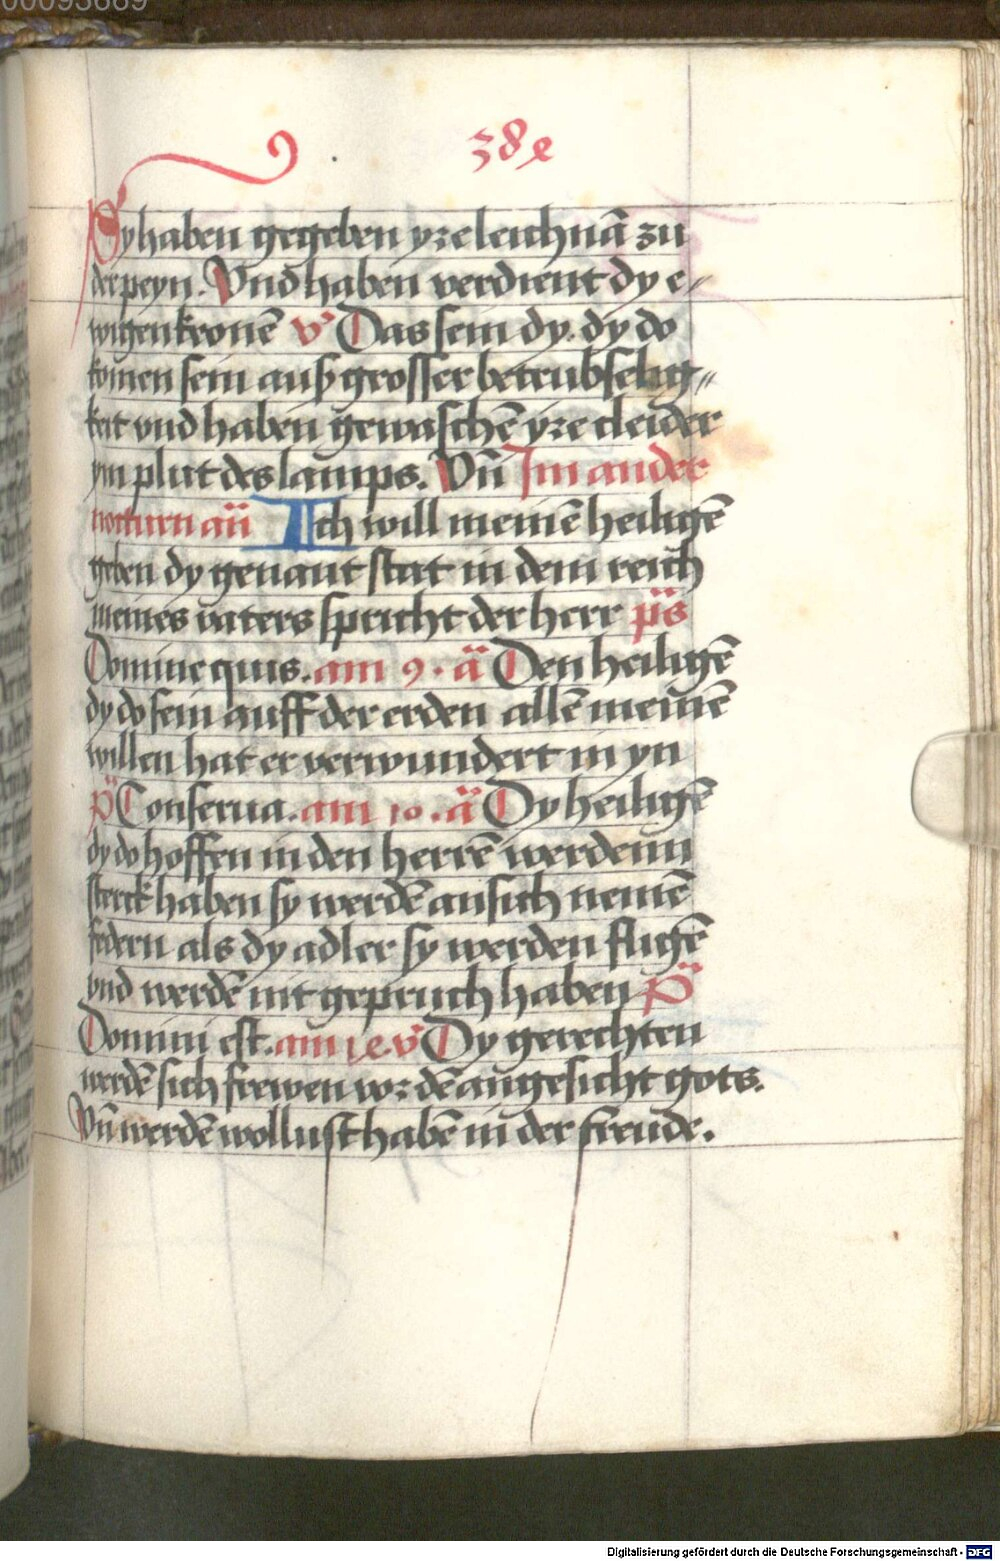 00093689
38e
Sy haben gegeben yre leichnā zu
der peyn. Vnd haben verdient dy e-
wigen kronē v Das sein dy. dy do
komen sein auß grosser betrubselig-
keit vnd haben gewaschē yre cleider
ym plut des lamps. Vn̄ Im ander
nocturn an̄ Ich will meinē heiligē
geben dy genant stat in dem reich
meines vaters spricht der herr ps
Domine quis. am 9. ā Den heiligē
dy do sein auff der erden allē meinē
willen hat er verwundert in yn
p̄ Conserua. am 10. ā Dy heiligē
dy do hoffen in den herrē werdenn
sterck haben sy werdē an sich nemē
federn als dy adler sy werden fligē
vnd werdē nit gepruch haben p̄
Domini est. am ie. v Dy gerechten
werdē sich frewen vor dē angesicht gots.
Vn̄ werdē wollust habē in der freude.
Digitalisierung gefördert durch die Deutsche Forschungsgemeinschaft - DFG